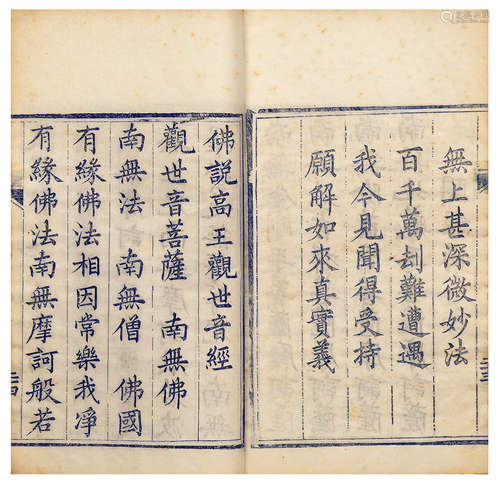 無上甚深微妙法
百千萬刧難遭遇
我今見聞得受持
願解如來真實義
佛說高王觀世音經
觀世音菩薩　南無佛
南無法　南無僧　佛國
有緣佛法相因常樂我淨
有緣佛法南無摩訶般若